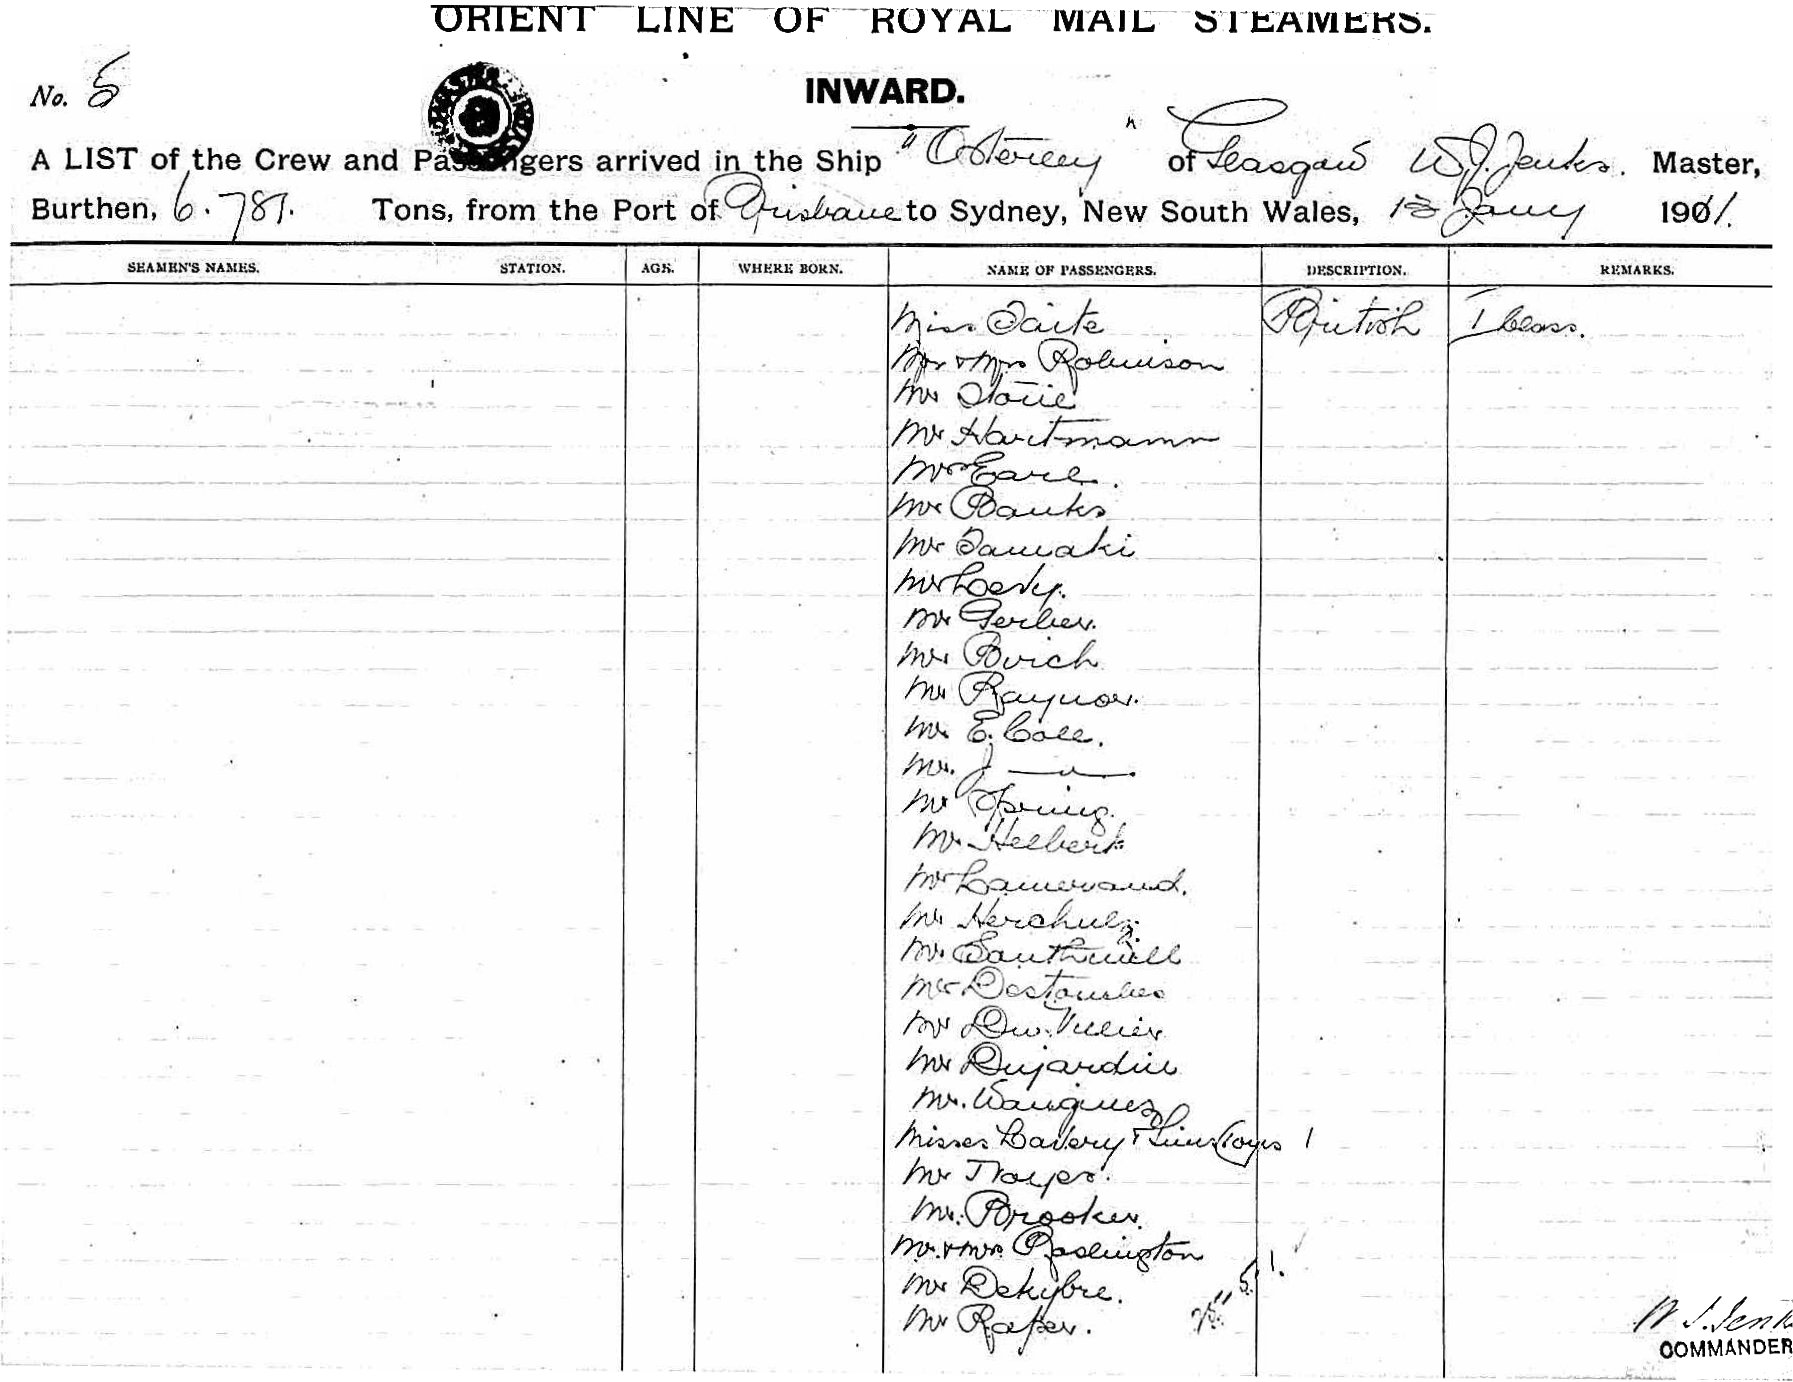 ORIENT LINE OF ROYAL MAIL STEAMERS.
No. 5
INWARD.
A LIST of the Crew and Passengers arrived in the Ship "Osterley" of Glasgow W.J. Jenks. Master,
Burthen, 6.781. Tons, from the Port of Brisbane to Sydney, New South Wales, 13 Jany 1901.
SEAMEN'S NAMES. STATION. AGE. WHERE BORN. NAME OF PASSENGERS. DESCRIPTION. REMARKS.
Miss Taite British I Class.
Mr & Mrs Robinson
Mr Storie
Mr Hartmann
Mr Earl.
Mr Banks
Mr Tamaki
Mr
Mr Gerber.
Mr Birch
Mr Raynor.
Mr E. Cole.
Mr. J — " —.
Mr Spring.
Mr. Helbert
Mr
Mr
Mr. Southwell
Mr Destouches
Mr
Mr Dujardin
Mr.
Misses Lavery &
Mr Thorps.
Mr. Brooker.
Mr. & Mrs. Paslington
Mr Dekybre.
Mr Raper.
W.J. Jenk
COMMANDER